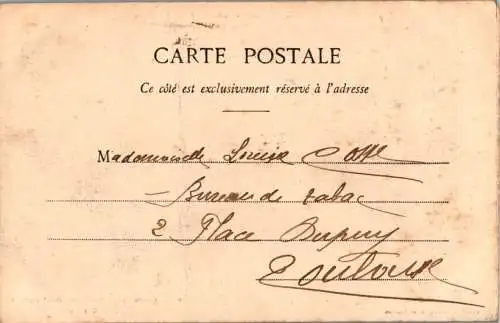 CARTE POSTALE
Ce côté est exclusivement réservé à l'adresse
Mademoiselle Louise
Bureau de tabac
2 Place Dupuy
Toulouse